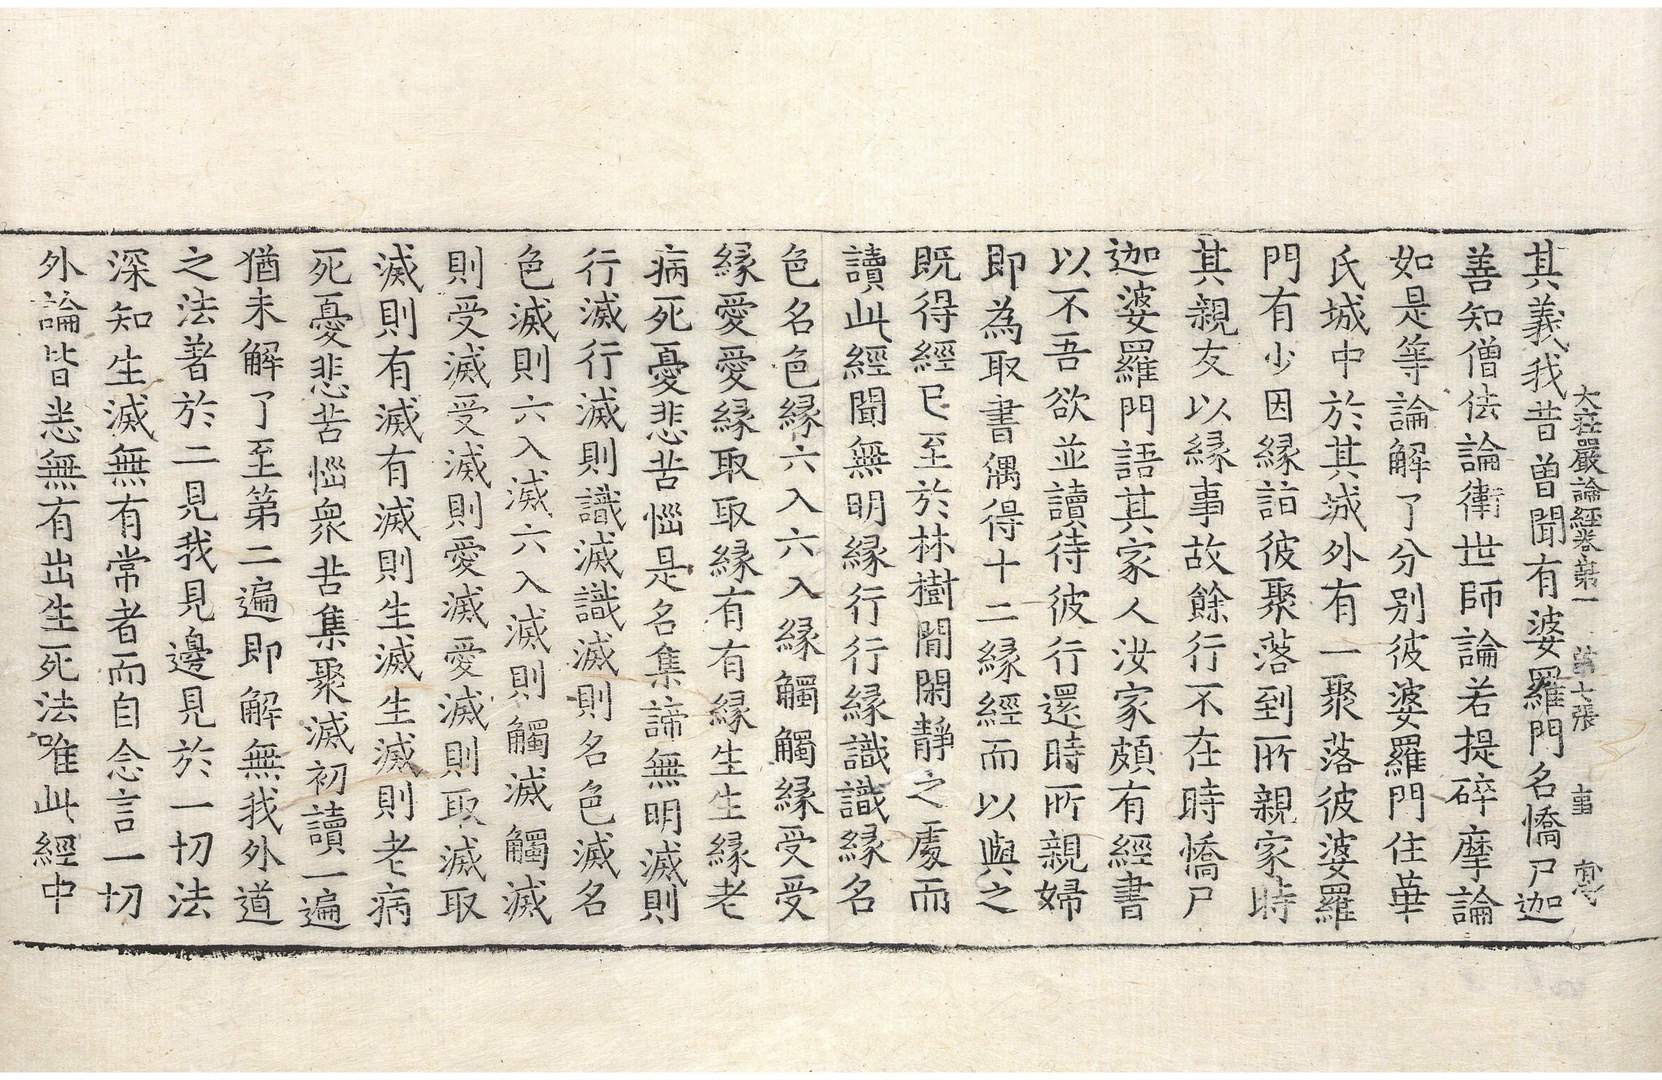 大莊嚴論經卷第一 第七張 事
其義我昔曾聞有婆羅門名憍尸迦
善知僧佉論衛世師論若提碎摩論
如是等論解了分別彼婆羅門住華
氏城中於其城外有一聚落彼婆羅
門有少因緣詣彼聚落到所親家時
其親友以緣事故餘行不在時憍尸
迦婆羅門語其家人汝家頗有經書
以不吾欲並讀待彼行還時所親婦
即為取書偶得十二緣經而以與之
既得經已至於林樹閒閑靜之處而
讀此經聞無明緣行行緣識識緣名
色名色緣六入六入緣觸觸緣受受
緣愛愛緣取取緣有有緣生生緣老
病死憂悲苦惱是名集諦無明滅則
行滅行滅則識滅識滅則名色滅名
色滅則六入滅六入滅則觸滅觸滅
則受滅受滅則愛滅愛滅則取滅取
滅則有滅有滅則生滅生滅則老病
死憂悲苦惱衆苦集聚滅初讀一遍
猶未解了至第二遍即解無我外道
之法著於二見我見邊見於一切法
深知生滅無有常者而自念言一切
外論皆悉無有出生死法唯此經中